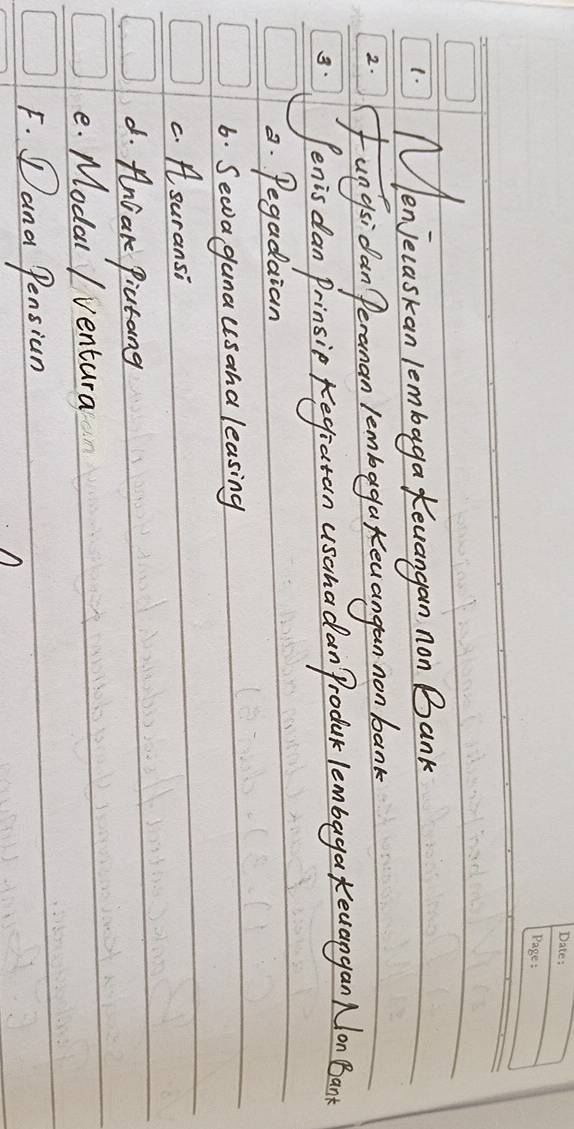 Date:
Page:
1. Menjelaskan lembaga keuangan non Bank
2. Fungsi dan Peranan lembaga keuangan non bank
3. Jenis dan prinsip kegiatan usaha dan Produk lembaga keuangan Non Bank
a. Pegadaian
b. Sewa guna usaha leasing
c. Asuransi
d. Anjak piutang
e. Modal / Ventura
F. Dana Pensiun